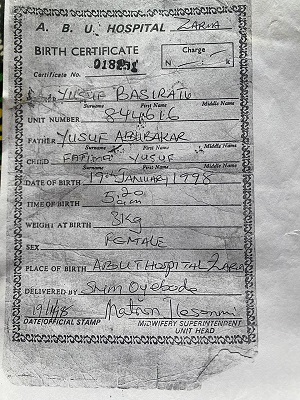 A. B. U. HOSPITAL ZARIA
BIRTH CERTIFICATE
Charge
N : K
Certificate No.
YUSUF BASIRATU
Surname First Name Middle Name
UNIT NUMBER 844616
FATHER YUSUF ABUBAKAR
Surname First Name Middle Name
CHILD FATIMA YUSUF
Surname First Name Middle Name
DATE OF BIRTH 19TH JANUARY 1998
TIME OF BIRTH 5.20 am
WEIGHT AT BIRTH 3Kg
SEX FEMALE
PLACE OF BIRTH ABUT HOSPITAL ZARIA
DELIVERED BY S/M Oyebode
19/1/98 Matron
DATE/OFFICIAL STAMP MIDWIFERY SUPERINTENDENT
UNIT HEAD